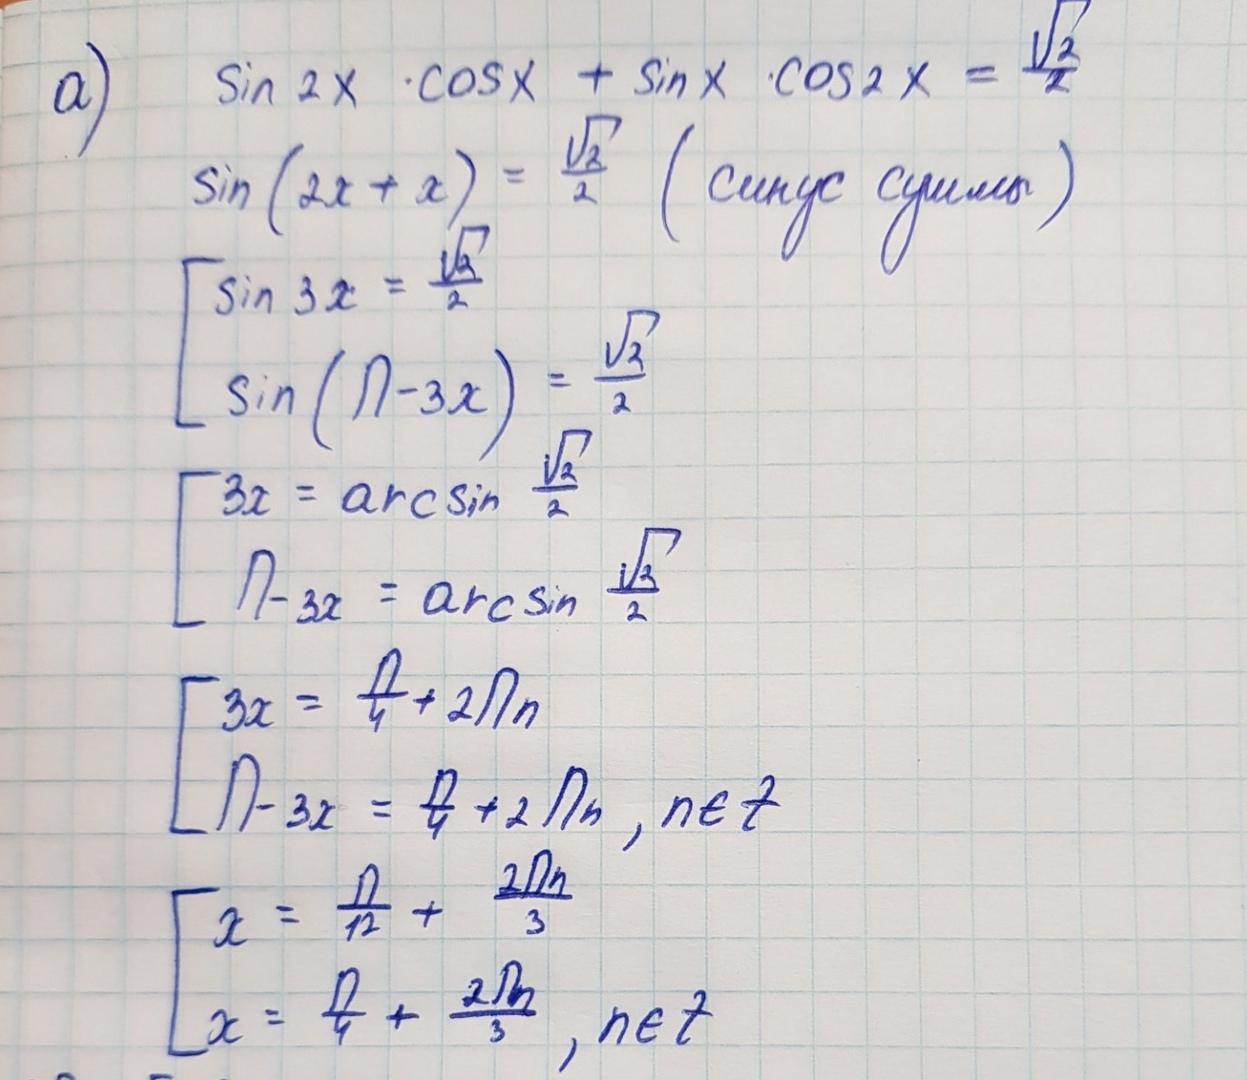 а) sin 2x · cos x + sin x · cos 2x = √2/2
sin (2x + x) = √2/2 ( синус суммы )
[ sin 3x = √2/2
sin (П - 3x) = √2/2
[ 3x = arcsin √2/2
П - 3x = arcsin √2/2
[ 3x = П/4 + 2Пn
П - 3x = П/4 + 2Пn , n ∈ Z
[ x = П/12 + 2Пn/3
x = П/4 + 2Пn/3 , n ∈ Z